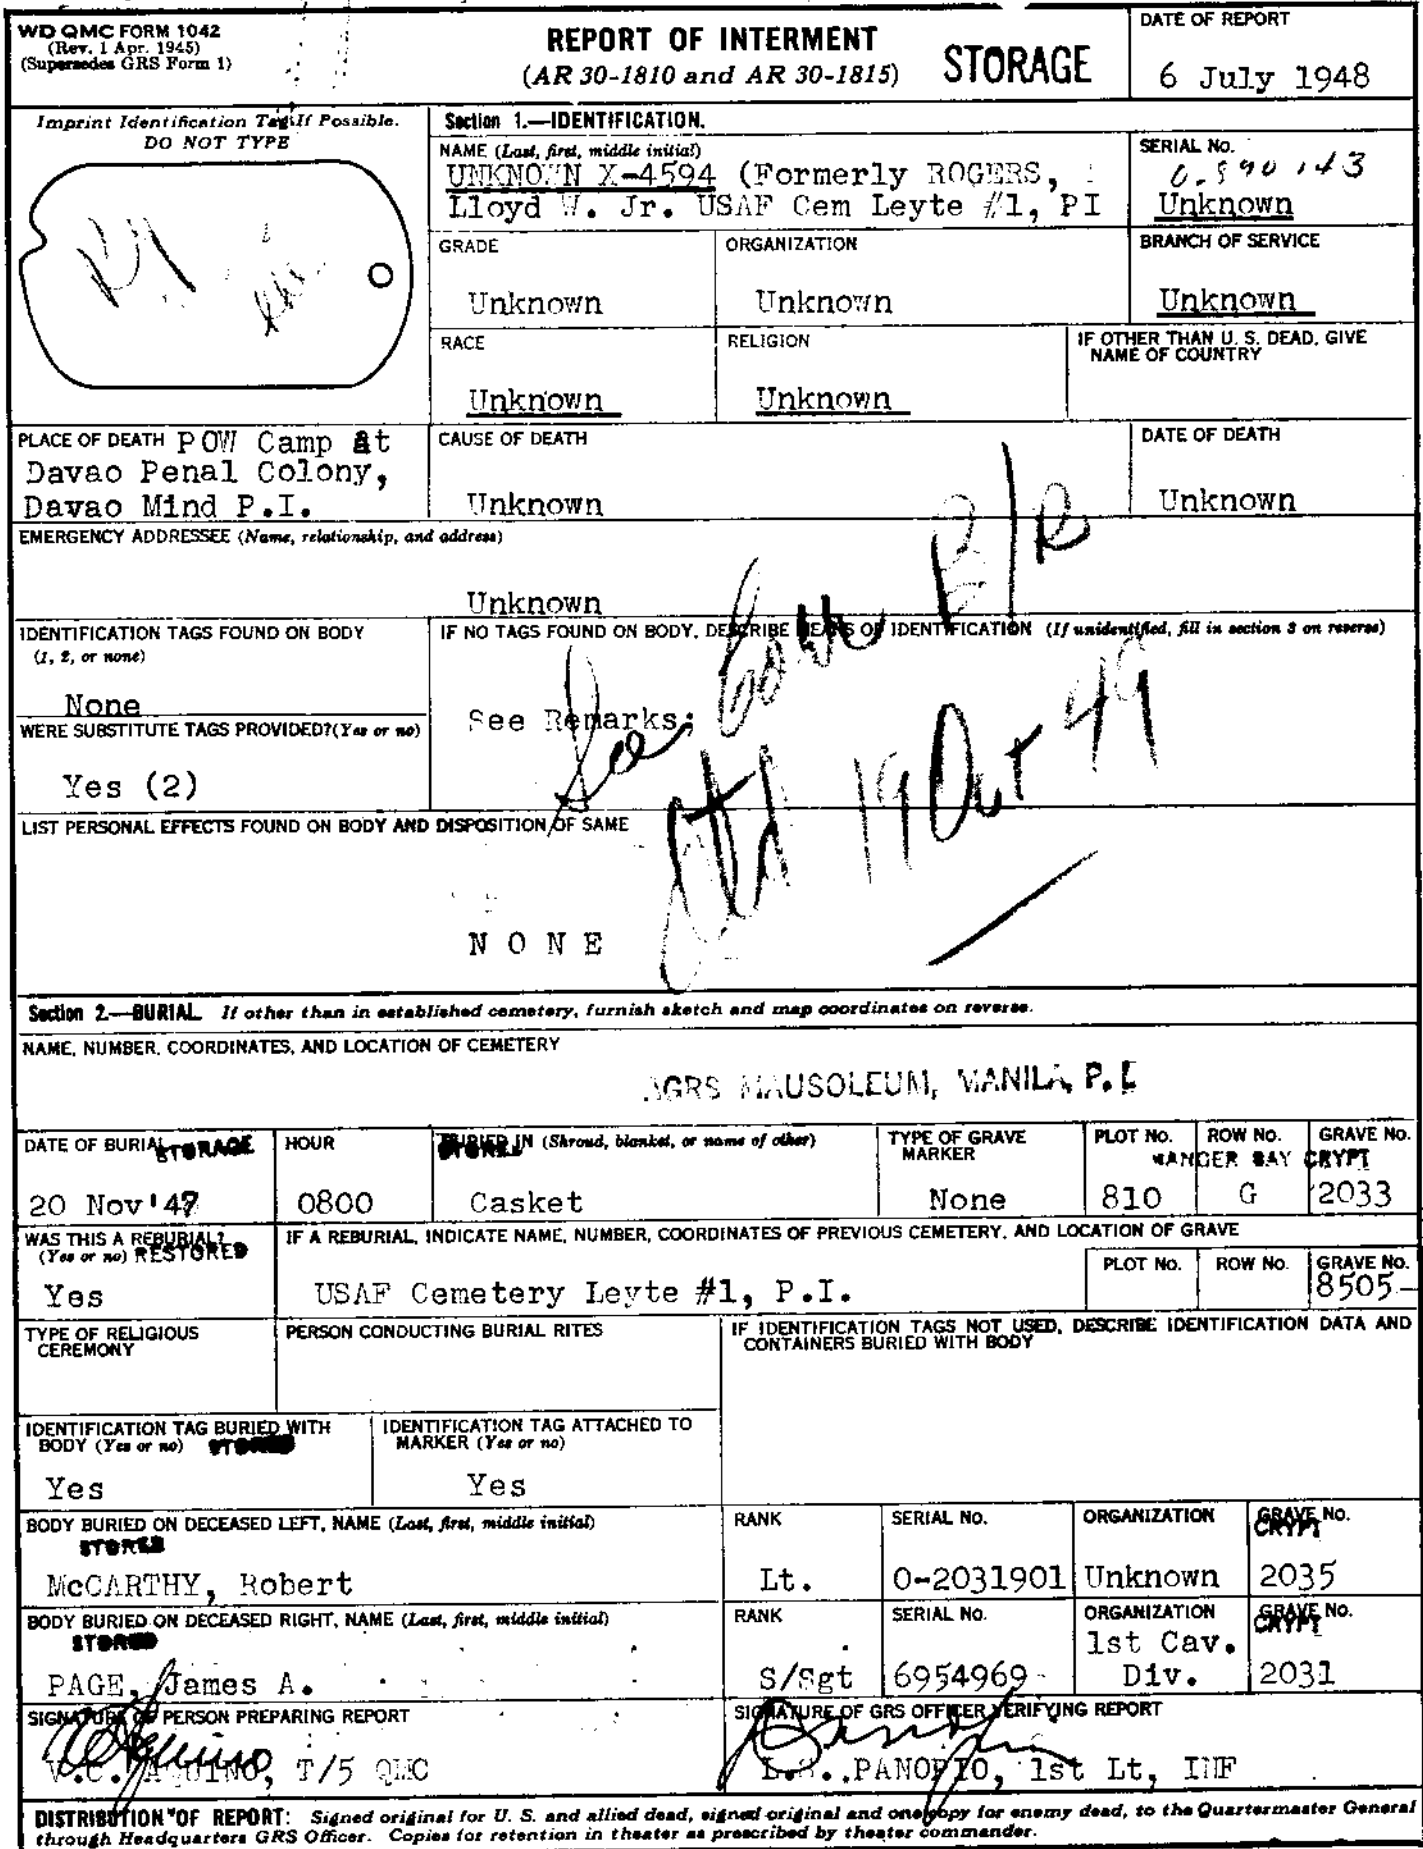 WD QMC FORM 1042
(Rev. 1 Apr. 1945)
(Supersedes GRS Form 1)
REPORT OF INTERMENT
(AR 30-1810 and AR 30-1815)
STORAGE
DATE OF REPORT
6 July 1948
Imprint Identification Tag If Possible.
DO NOT TYPE
Section 1.—IDENTIFICATION.
NAME (Last, first, middle initial)
UNKNOWN X-4594 (Formerly ROGERS,
Lloyd W. Jr. USAF Cem Leyte #1, PI
SERIAL No.
0-890143
Unknown
GRADE
Unknown
ORGANIZATION
Unknown
BRANCH OF SERVICE
Unknown
RACE
Unknown
RELIGION
Unknown
IF OTHER THAN U. S. DEAD, GIVE
NAME OF COUNTRY
PLACE OF DEATH POW Camp at
Davao Penal Colony,
Davao Mind P.I.
CAUSE OF DEATH
Unknown
DATE OF DEATH
Unknown
EMERGENCY ADDRESSEE (Name, relationship, and address)
Unknown
IDENTIFICATION TAGS FOUND ON BODY
(1, 2, or none)
None
IF NO TAGS FOUND ON BODY, DESCRIBE MEANS OF IDENTIFICATION (If unidentified, fill in section 3 on reverse)
See Remarks;
WERE SUBSTITUTE TAGS PROVIDED?(Yes or no)
Yes (2)
See
19 Oct 49
LIST PERSONAL EFFECTS FOUND ON BODY AND DISPOSITION OF SAME
N O N E
Section 2.—BURIAL. If other than in established cemetery, furnish sketch and map coordinates on reverse.
NAME, NUMBER, COORDINATES, AND LOCATION OF CEMETERY
AGRS MAUSOLEUM, MANILA, P. I.
DATE OF BURIAL STORAGE
20 Nov '47
HOUR
0800
BURIED IN (Shroud, blanket, or name of other)
STORED
Casket
TYPE OF GRAVE
MARKER
None
PLOT No. ROW No. GRAVE No.
HANGER BAY CRYPT
810 G 2033
WAS THIS A REBURIAL?
(Yes or no) RESTORED
Yes
IF A REBURIAL, INDICATE NAME, NUMBER, COORDINATES OF PREVIOUS CEMETERY, AND LOCATION OF GRAVE
USAF Cemetery Leyte #1, P.I.
PLOT No. ROW No. GRAVE No.
8505
TYPE OF RELIGIOUS
CEREMONY
PERSON CONDUCTING BURIAL RITES
IF IDENTIFICATION TAGS NOT USED, DESCRIBE IDENTIFICATION DATA AND
CONTAINERS BURIED WITH BODY
IDENTIFICATION TAG BURIED WITH
BODY (Yes or no) STORED
Yes
IDENTIFICATION TAG ATTACHED TO
MARKER (Yes or no)
Yes
BODY BURIED ON DECEASED LEFT, NAME (Last, first, middle initial)
STORED
McCARTHY, Robert
RANK
Lt.
SERIAL No.
0-2031901
ORGANIZATION
Unknown
GRAVE No.
CRYPT
2035
BODY BURIED ON DECEASED RIGHT, NAME (Last, first, middle initial)
STORED
PAGE, James A.
RANK
S/Sgt
SERIAL No.
6954969
ORGANIZATION
1st Cav.
Div.
GRAVE No.
CRYPT
2031
SIGNATURE OF PERSON PREPARING REPORT
V.C. AQUINO, T/5 QMC
SIGNATURE OF GRS OFFICER VERIFYING REPORT
PANOPIO, 1st Lt, INF
DISTRIBUTION OF REPORT: Signed original for U. S. and allied dead, signed original and one copy for enemy dead, to the Quartermaster General
through Headquarters GRS Officer. Copies for retention in theater as prescribed by theater commander.